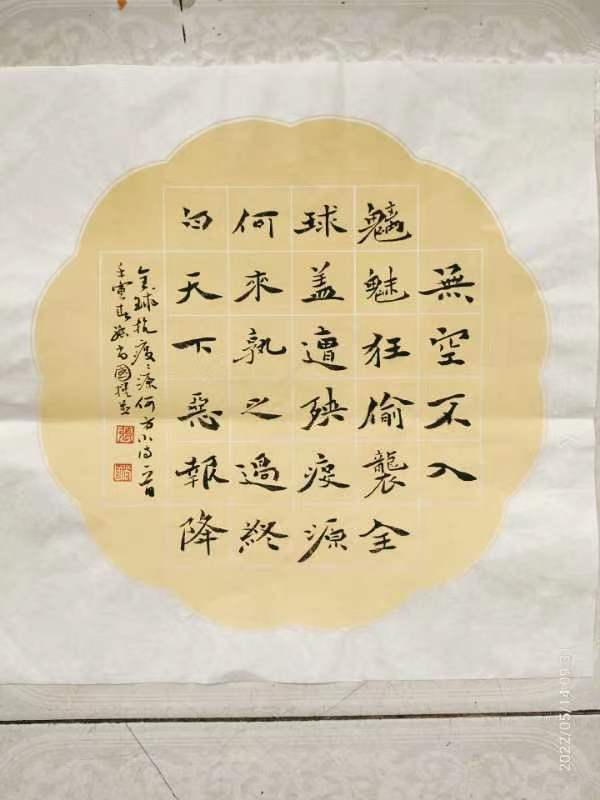 無空不入
魑魅狂偷襲全
球盖遭殃疫源
何來孰之過終
向天下惡報降
全球抗疫〻源何方小诗一首
壬寅春國撰
2022/05/14 09:31